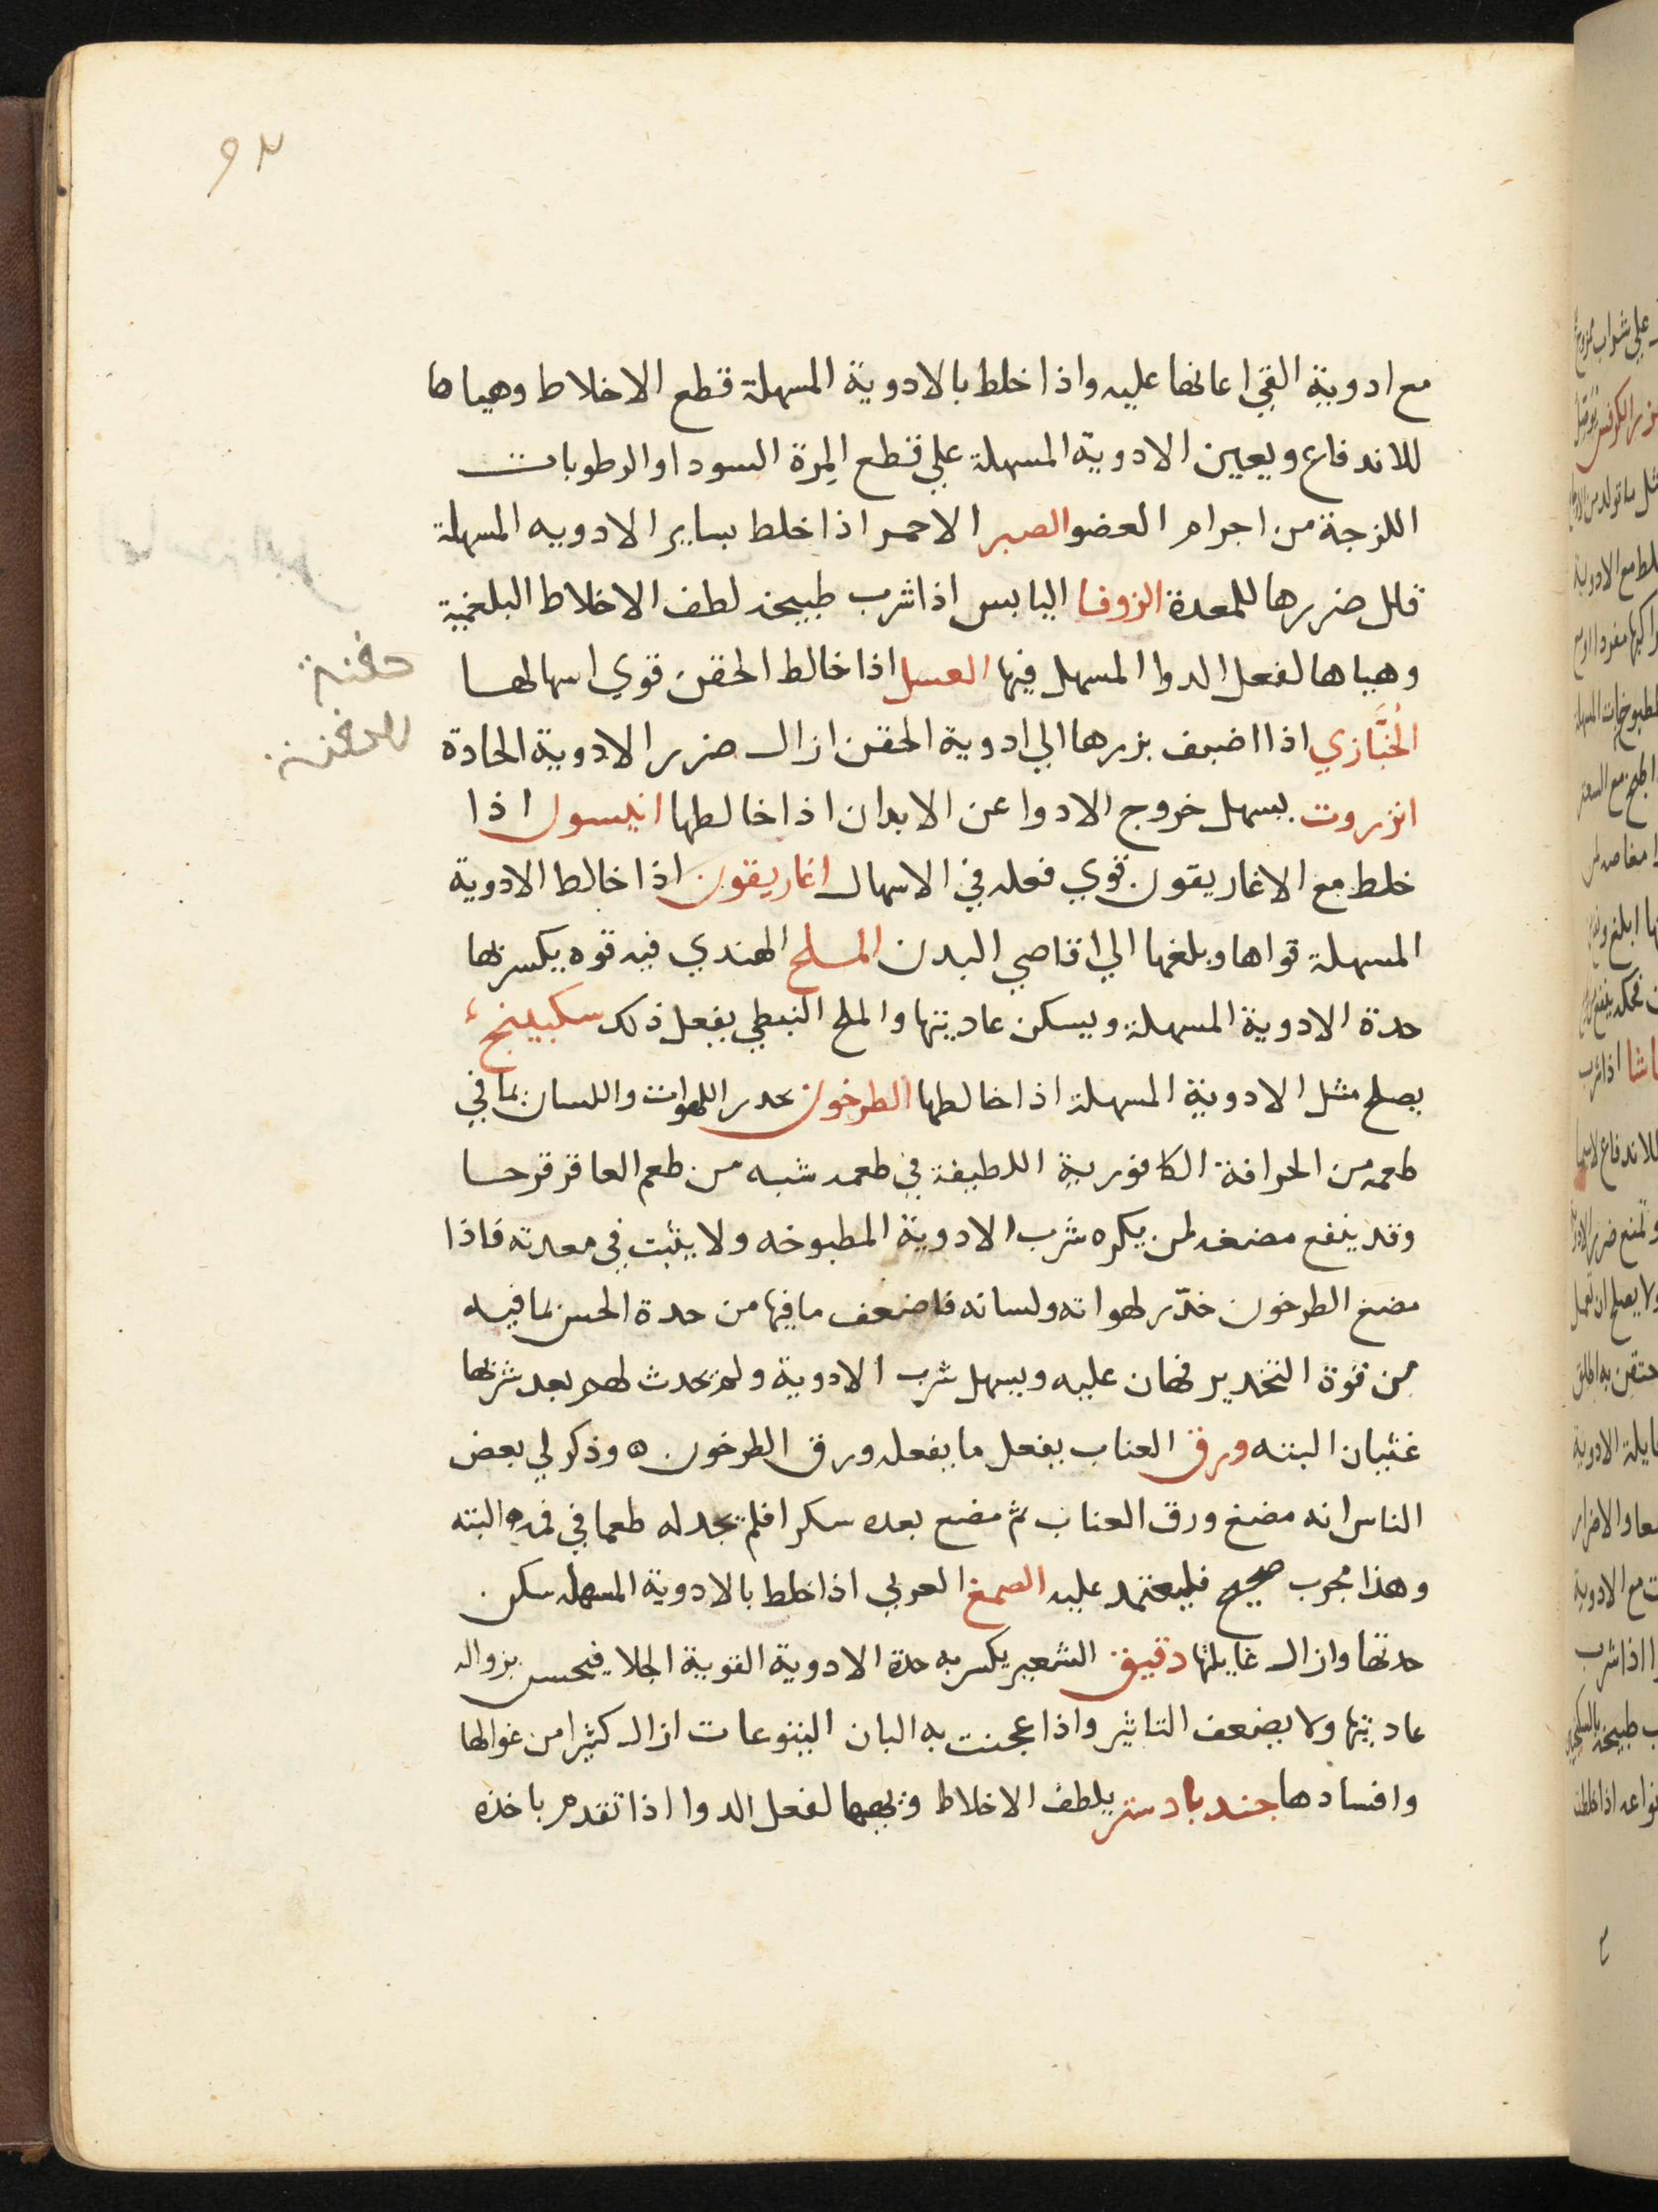 ٩٣
مع ادوية القي اعانها عليه واذا خلط بالادوية المسهلة قطع الاخلاط وهياها
للاندفاع ويعين الادوية المسهلة علي قطع المِرة السودا والرطوبات
اللزجة من اجرام العضو الصبر الاحمر اذا خلط بساير الادويه المسهلة
قلل ضررها للمعدة الزوفا اليابس اذا شرب طبيخه لطف الاخلاط البلغمية
وهياها لفعل الدوا المسهل فيها العسل اذا خالط الحقن قوي اسهالها
حقنة
الخبَّازي اذا اضيف بزرها الي ادوية الحقن ازال ضرر الادوية الحادة
للحقنة
انزروت يسهل خروج الادوا عن الابدان اذا خالطها انيسون اذا
خلط مع الاغاريقون قوي فعله في الاسهال اغاريقون اذا خالط الادوية
المسهلة قواها وبلغها الي اقاصي البدن الملح الهندي فيه قوه يكسر بها
حدة الادوية المسهلة ويسكن عاديتها والملح النبطي يفعل ذلك سكبينج
يصلح مثل الادوية المسهلة اذا خالطها الطرخون يخدر اللهوات واللسان بما في
طعمه من الحرافة الكافورية اللطيفة في طعمه شبه من طعم العاقر قرحا
وقد ينفع مضغه لمن يكره شرب الادوية المطبوخه ولا يثبت في معدته فاذا
مضغ الطرخون خدّر لهواته ولسانه فاضعف ما فيها من حدة الحس بما فيه
من قوة التخدير فهان عليه ويسهل شرب الادوية ولم يحدث لهم بعد شربها
غثيان البته ورق العناب يفعل ما يفعله ورق الطرخون ه وذكر لي بعض
الناس انه مضغ ورق العناب ثم مضغ بعده سكرا فلم يجد له طعما في فمه البته
وهذا مجرب صحيح فليعتمد عليه الصمغ العربي اذا خلط بالادوية المسهله سكن
حدتها وازال غايلتها دقيق الشعير يكسر به حدة الادوية القوية الجلا فيحسن بزوال
عاديتها ولا يضعف التاثير واذا عجنت به البان اليتوعات ازال كثيرا من غوالها
وافسادها جندبادستر يلطف الاخلاط ويهيها لفعل الدوا اذا تقدم باخذه